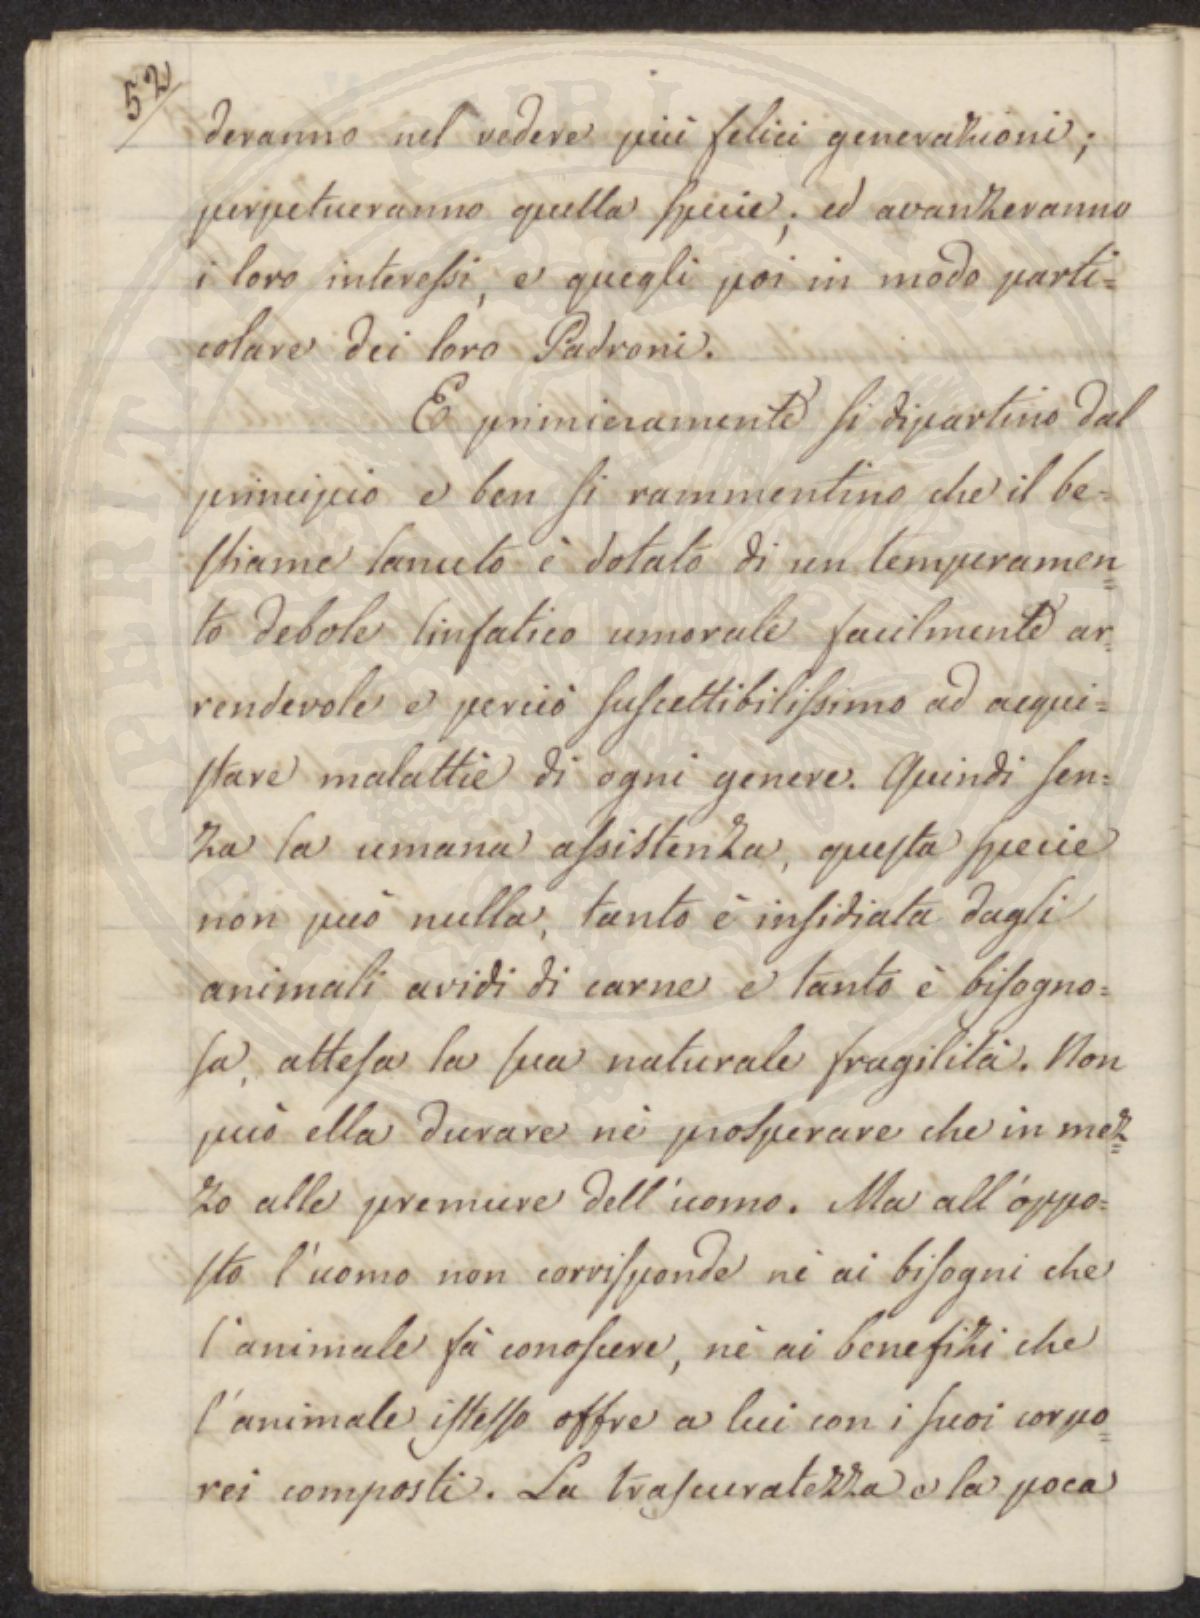 52
deranno nel vedere più felici generazioni;
perpetueranno quella specie; ed avanzeranno
i loro interessi, e quegli poi in modo parti=
colare dei loro Padroni.
E primieramente si dipartino dal
principio e ben si rammentino che il be=
stiame lanuto è dotato di un temperamen=
to debole linfatico umorale facilmente ar=
rendevole e perciò suscettibilissimo ad acqui=
stare malattie di ogni genere. Quindi sen=
za la umana assistenza, questa specie
non può nulla, tanto è insidiata dagli
animali avidi di carne e tanto è bisogno=
sa, attesa la sua naturale fragilità. Non
può ella durare nè prosperare che in mez=
zo alle premure dell'uomo. Ma all'oppo=
sto l'uomo non corrisponde nè ai bisogni che
l'animale fà conoscere, nè ai benefizi che
l'animale istesso offre a lui con i suoi corpo=
rei composti. La trascuratezza e la poca